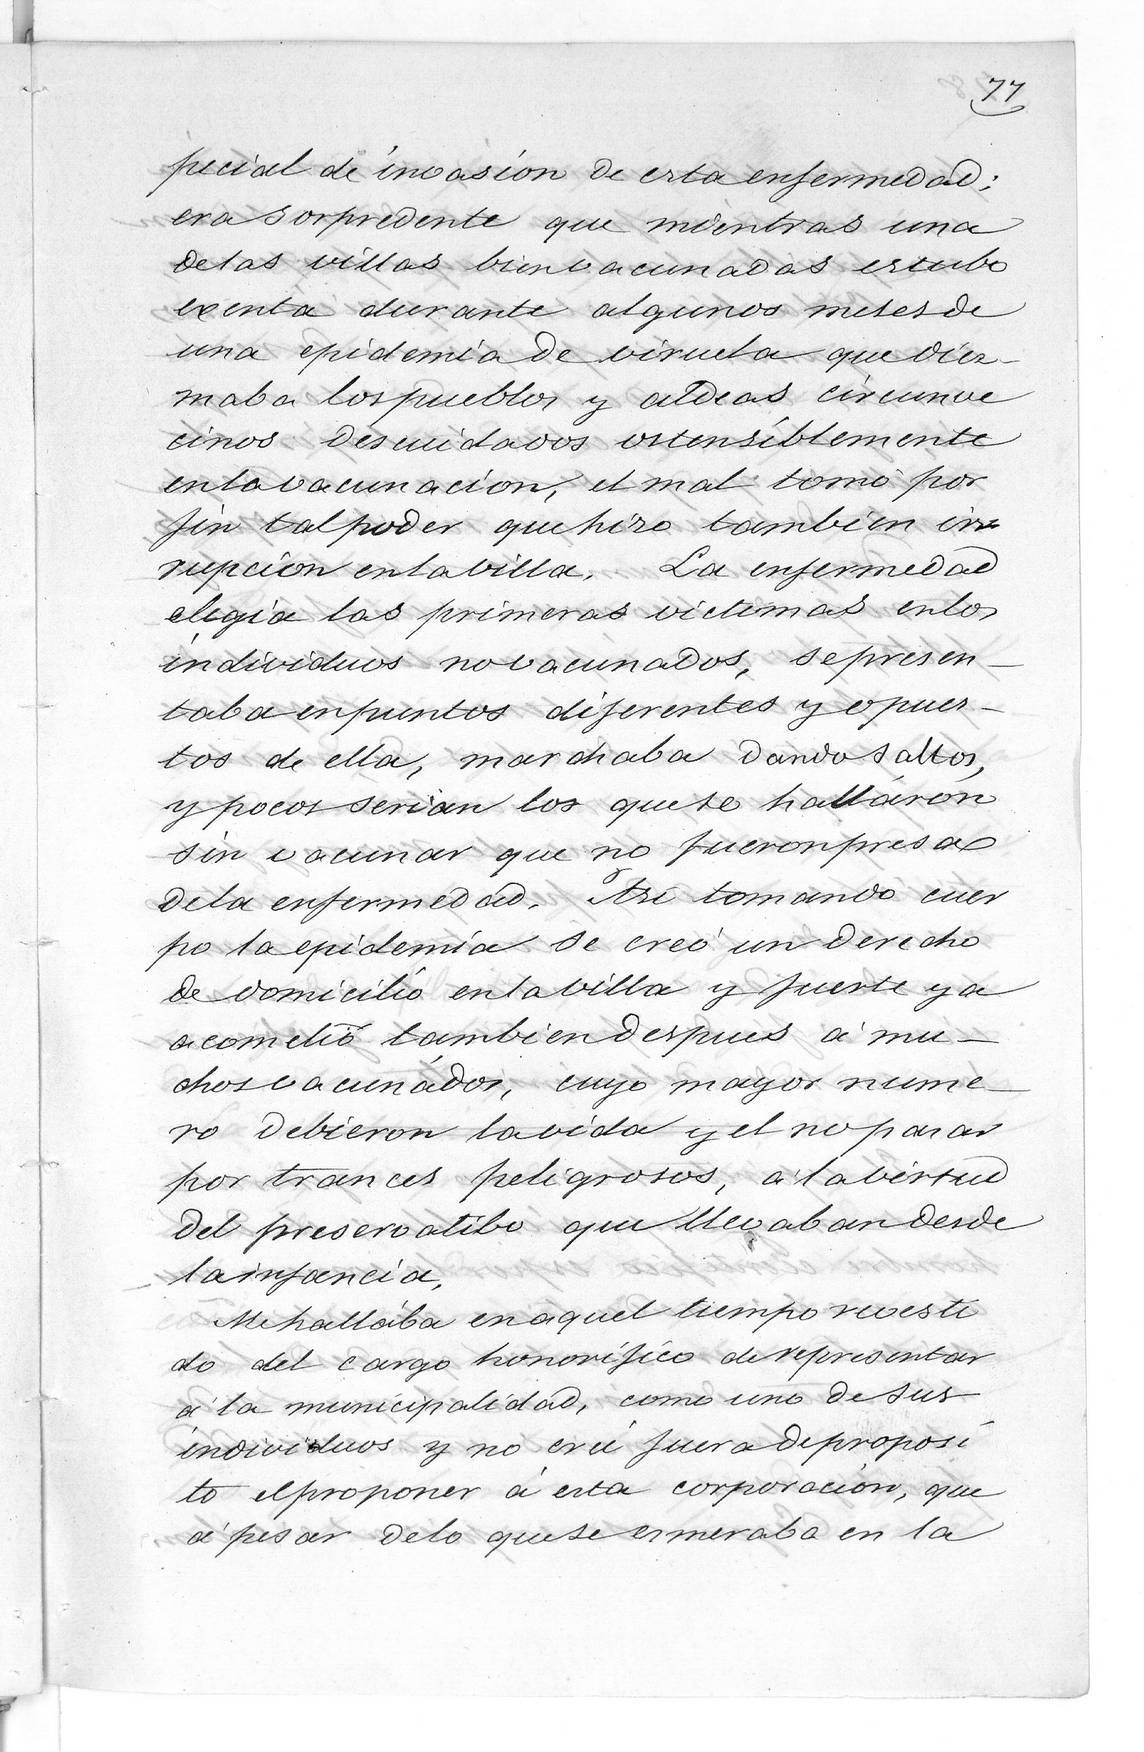 77
pecial de invasion de esta enfermedad;
era sorpredente que mientras una
de las villas bien vacunadas estubo
exenta durante algunos meses de
una epidemia de viruela que diez-
maba los pueblos y aldeas circunve
cinos descuidados ostensiblemente
en la vacunacion, el mal tomó por
fin tal poder que hizo tambien irr
rupcion en la villa. La enfermedad
elegia las primeras victimas en los
individuos no vacunados, se presen-
taba en puntos diferentes y opues-
tos de ella, marchaba dando saltos,
y pocos serian los que se halláron
sin vacunar que no fueron presa
de la enfermedad. Asi tomando cuer
po la epidemia se creó un derecho
de domicilio en la villa y fuerte ya
acometió tambien despues á mu-
chos vacunádos, cuyo mayor nume-
ro debieron la vida y el no pasar
por trances peligrosos, á la virtud
del preservatibo que llevaban desde
la infancia.
Me hallába en aquel tiempo revesti
do del cargo honorifico de representar
á la municipalidad, como uno de sus
individuos y no creí fuera de proposi
to el proponer á esta corporacion, que
á pesar de lo que se esmeraba en la